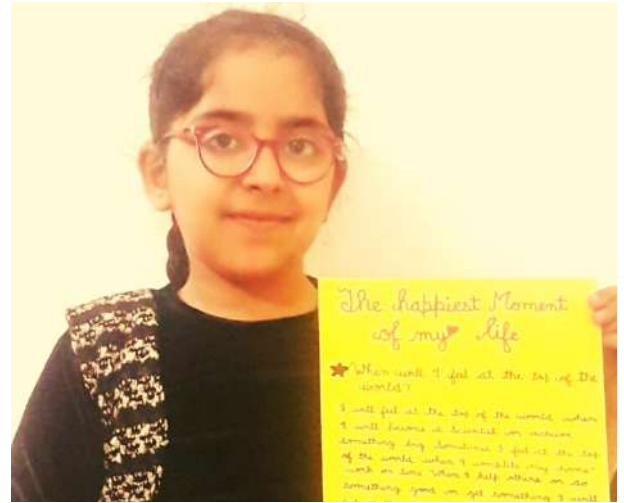 The happiest Moment
of my life
When will I feel at the top of the
world?
I will feel at the top of the world when
I will become a Scientist or achieve
something big. Sometimes I feel at the top
of the world when I complete my home-
work on time. When I help others or do
something good or get something I will